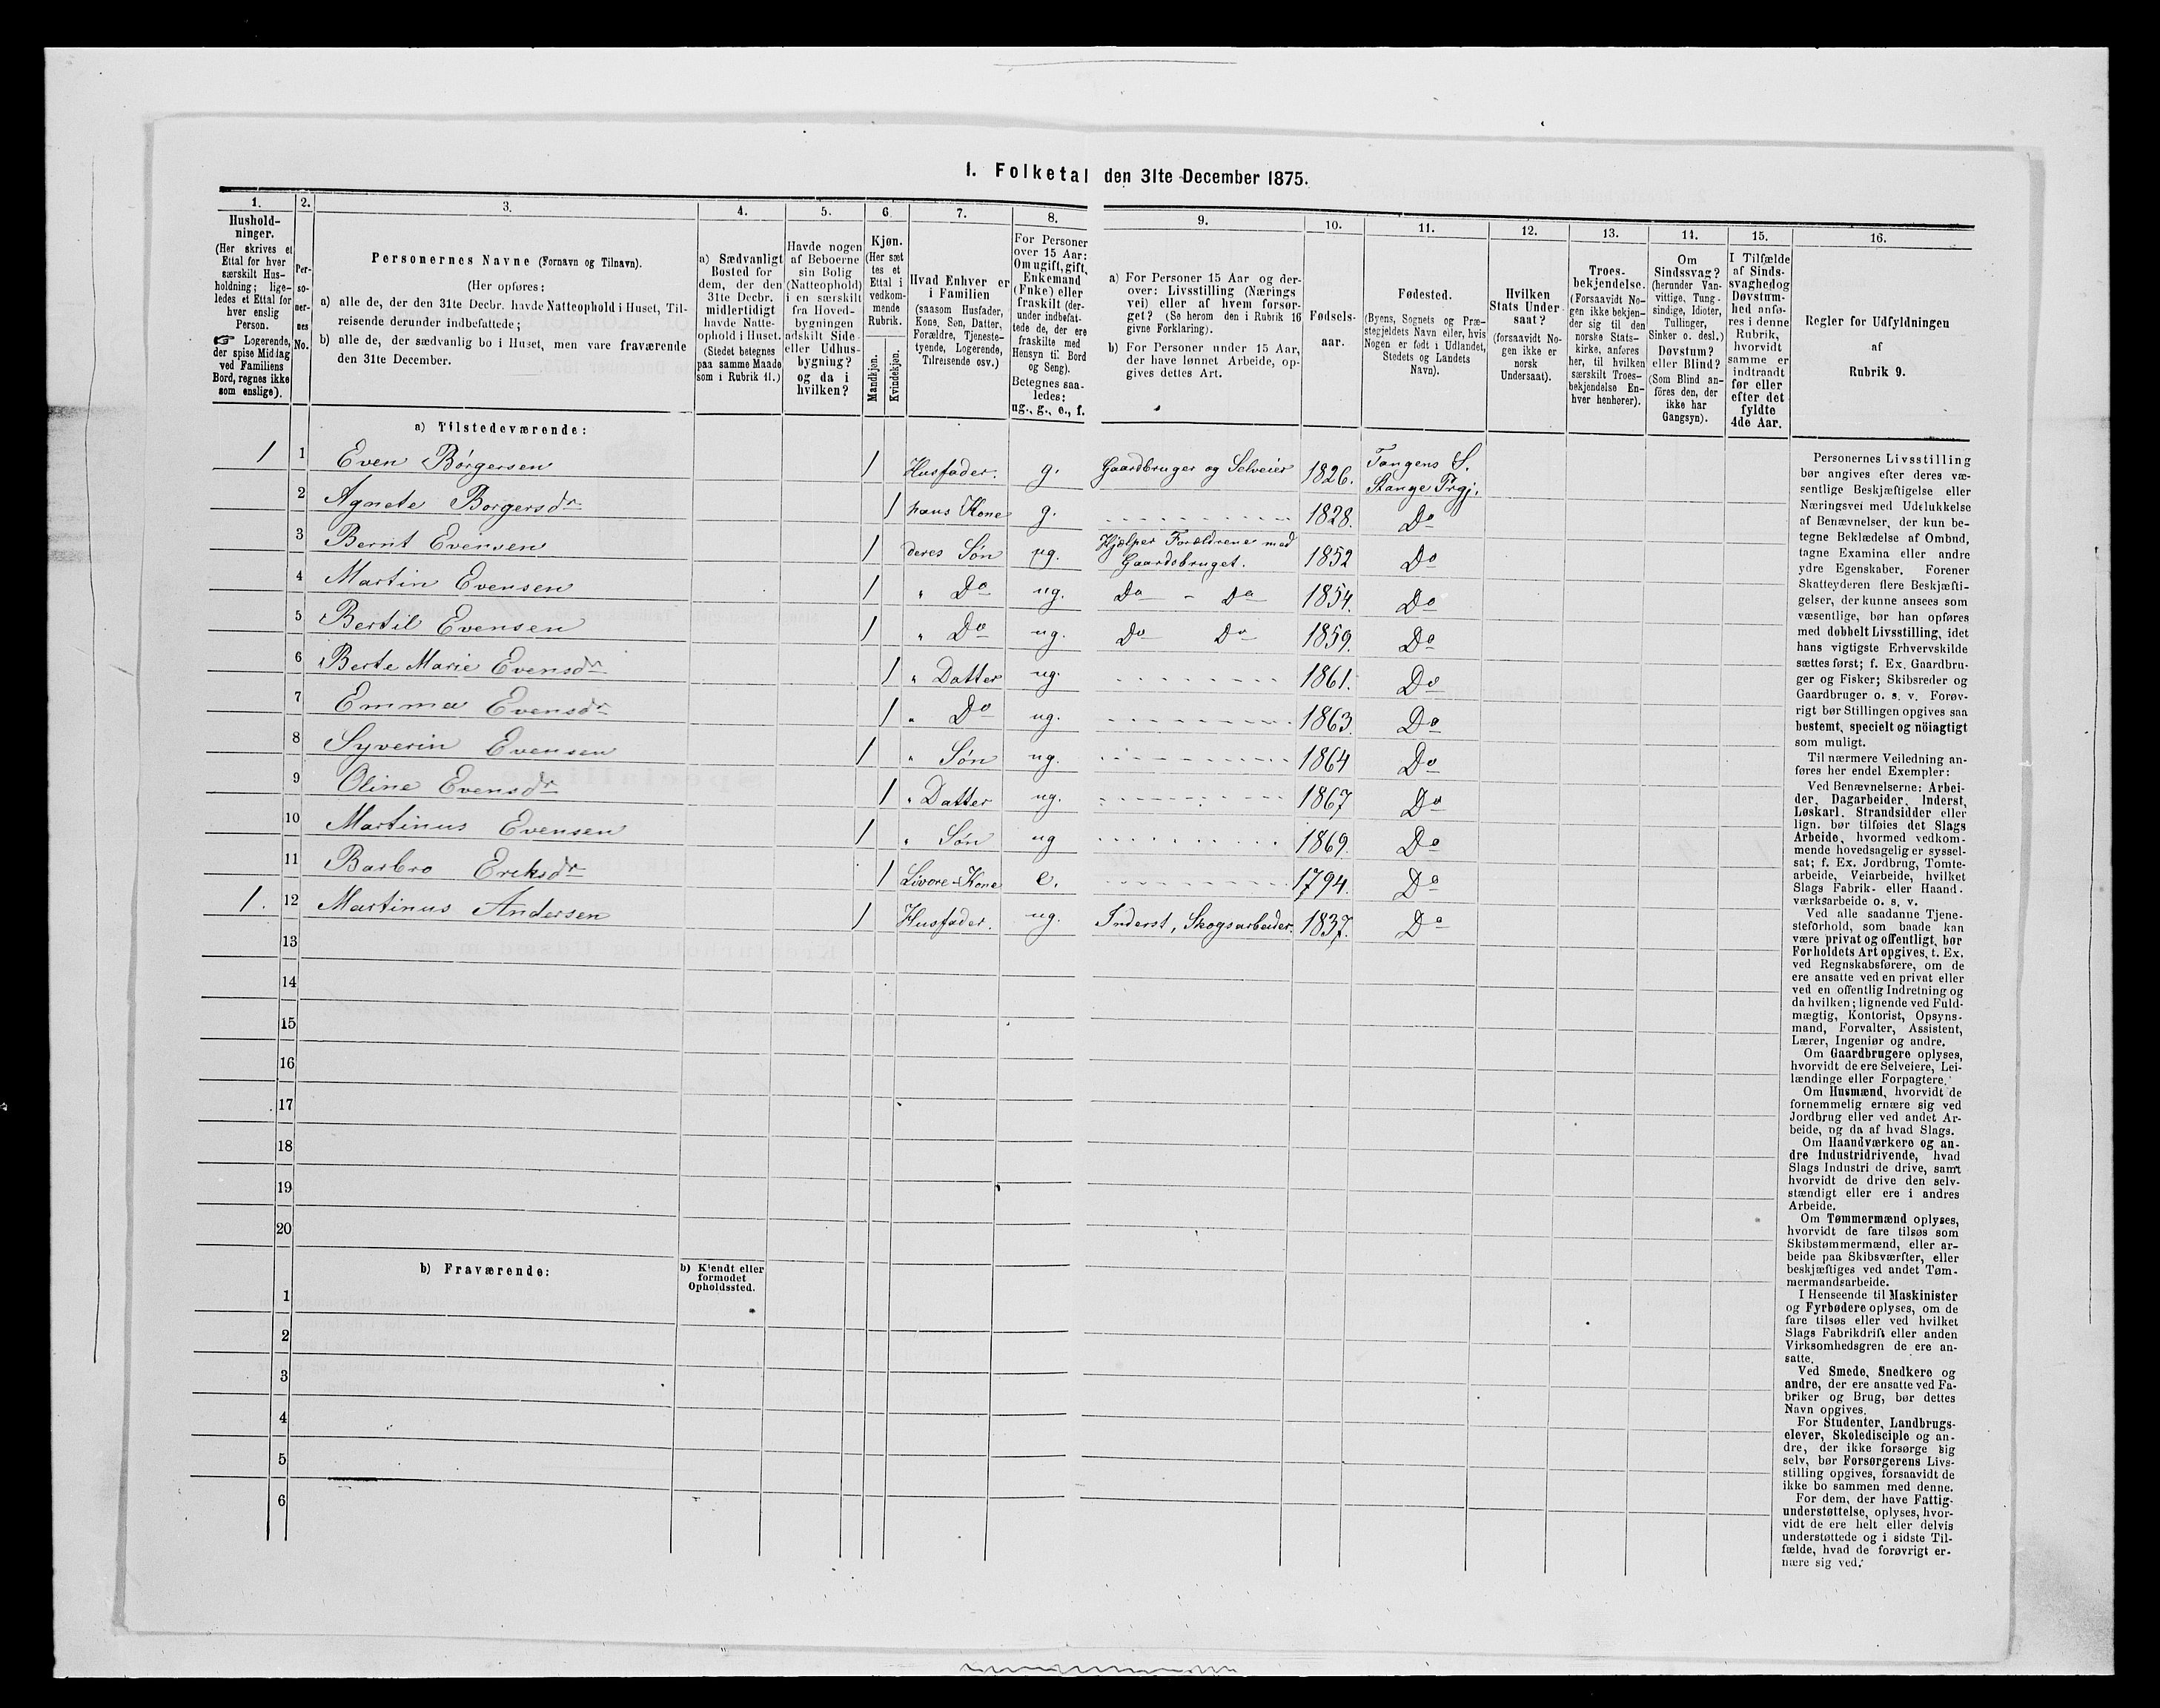 I. Folketal den 31te December 1875.
1.
Hushold-
ninger.
(Her skrives et
Ettal for hver
særskilt Hus-
holdning; lige-
ledes et Ettal for
hver enslig
Person.
☞ Logerende,
der spise Middag
ved Familiens
Bord, regnes ikke
som enslige).
2.
Per-
so-
ner-
nes
No.
3.
Personernes Navne (Fornavn og Tilnavn).
(Her opføres:
a) alle de, der den 31te Decbr. havde Natteophold i Huset, Til-
reisende derunder indbefattede;
b) alle de, der sædvanlig bo i Huset, men vare fraværende
den 31te December.
4.
a) Sædvanligt
Bosted for
dem, der den
31te Decbr.
midlertidigt
havde Natte-
ophold i Huset.
(Stedet betegnes
paa samme Maade
som i Rubrik 11.)
5.
Havde nogen
af Beboerne
sin Bolig
(Natteophold)
i en særskilt
fra Hoved-
bygningen
adskilt Side-
eller Udhus-
bygning?
og da i
hvilken?
6.
Kjøn.
(Her sæt
tes et
Ettal i
vedkom-
mende
Rubrik.
Mandkjøn.
Kvindekjøn.
7.
Hvad Enhver er
i Familien
(saasom Husfader,
Kone, Søn, Datter,
Forældre, Tjeneste-
tyende, Logerende,
Tilreisende osv.)
8.
For Personer
over 15 Aar:
Om ugift, gift,
Enkemand
(Enke) eller
fraskilt (der-
under indbefat-
tede de, der ere
fraskilte med
Hensyn til Bord
og Seng).
Betegnes saa-
ledes:
ug., g., e., f.
9.
a) For Personer 15 Aar og der-
over: Livsstilling (Nærings
vei) eller af hvem forsør-
get? (Se herom den i Rubrik 16
givne Forklaring).
b) For Personer under 15 Aar,
der have lønnet Arbeide, op-
gives dettes Art.
10.
Fødsels-
aar.
11.
Fødested.
(Byens, Sognets og Præ-
stegjeldets Navn eller, hvis
Nogen er født i Udlandet,
Stedets og Landets
Navn).
12.
Hvilken
Stats Under-
saat?
(forsaavidt No-
gen ikke er
norsk
Undersaat).
13.
Troes-
bekjendelse.
(Forsaavidt No-
gen ikke bekjen-
der sig til den
norske Stats-
kirke, anføres
her, til hvilken
særskilt Troes-
bekjendelse En-
hver henhører).
14.
Om
Sindssvag?
(herunder Van-
vittige, Tung-
sindige, Idioter,
Tullinger,
Sinker o. desl.)
Døvstum?
eller Blind?
(Som Blind an-
føres den, der
ikke har
Gangsyn).
15.
I Tilfælde
af Sinds-
svaghed og
Døvstum-
hed anfø-
res i denne
Rubrik,
hvorvidt
samme er
indtraadt
før eller
efter det
fyldte
4de Aar.
16.
Regler for Udfyldningen
af
Rubrik 9.
a) Tilstedeværende:
1 1 Even Børgersen 1 Husfader. g. Gaardbruger og Selveier 1826. Tangens S. Stange Prgj.
2 Agnete Borgersdr 1 hans Kone g. 1828. Do
3 Bernt Evensen 1 deres Søn ug. Hjælper Forældrene med Gaardsbruget. 1852 Do
4 Martin Evensen 1 " Do ug. Do - Do 1854. Do
5 Bertil Evensen 1 " Do ug. Do Do 1859. Do
6 Berte Marie Evensdr 1 " Datter ug. 1861. Do
7 Emma Evensdr 1 " Do ug. 1863. Do
8 Syverin Evensen 1 " Søn ug. 1864 Do
9 Oline Evensdr 1 " Datter ug. 1867 Do
10 Martinus Evensen 1 " Søn ug 1869. Do
11 Barbro Eriksdr 1 Livøre-Kone e. 1794. Do
1. 12 Martinus Andersen 1 Husfader. ug. Inderst, Skogsarbeider. 1837. Do
13
14
15
16
17
18
19
20
b) Fraværende:
b) Kjendt eller
formodet
Opholdssted.
1
2
3
4
5
6
Personernes Livsstilling
bør angives efter deres væ-
sentlige Beskjæftigelse eller
Næringsvei med Udelukkelse
af Benævnelser, der kun be-
tegne Beklædelse af Ombud,
tagne Examina eller andre
ydre Egenskaber. Forener
Skatteyderen flere Beskjæfti-
gelser, der kunne ansees som
væsentlige, bør han opføres
med dobbelt Livsstilling, idet
hans vigtigste Erhvervskilde
sættes først; f. Ex. Gaardbru-
ger og Fisker; Skibsreder og
Gaardbruger o. s. v. Forøv-
rigt bør Stillingen opgives saa
bestemt, specielt og nöiagtigt
som muligt.
Til nærmere Veiledning an-
føres her endel Exempler:
Ved Benævnelserne: Arbei-
der, Dagarbeider, Inderst,
Løskarl, Strandsidder eller
lign. bør tilføies det Slags
Arbeide, hvormed vedkom-
mende hovedsagelig er syssel-
sat; f. Ex. Jordbrug, Tomte-
arbeide, Veiarbeide, hvilket
Slags Fabrik- eller Haand-
værksarbeide o. s. v.
Ved alle saadanne Tjene-
steforhold, som baade kan
være privat og offentligt, bør
Forholdets Art opgives, t. Ex.
ved Regnskabsførere, om de
ere ansatte ved en privat eller
ved en offentlig Indretning og
da hvilken; lignende ved Fuld-
mægtig, Kontorist, Opsyns-
mand, Forvalter, Assistent,
Lærer, Ingeniør og andre.
Om Gaardbrugere oplyses,
hvorvidt de ere Selveiere, Lei-
lændinge eller Forpagtere.
Om Husmænd, hvorvidt de
fornemmelig ernære sig ved
Jordbrug eller ved andet Ar-
beide, og da af hvad Slags.
Om Haandværkere og an-
dre Industridrivende, hvad
Slags Industri de drive, samt
hvorvidt de drive den selv-
stændigt eller ere i andres
Arbeide.
Om Tømmermænd oplyses,
hvorvidt de fare tilsøs som
Skibstømmermænd, eller ar-
beide paa Skibsværfter, eller
beskjæftiges ved andet Tøm-
mermandsarbeide.
I Henseende til Maskinister
og Fyrbødere oplyses, om de
fare tilsøs eller ved hvilket
Slags Fabrikdrift eller anden
Virksomhedsgren de ere an-
satte.
Ved Smede, Snedkere og
andre, der ere ansatte ved Fa-
briker og Brug, bør dettes
Navn opgives.
For Studenter, Landbrugs-
elever, Skoledisciple og an-
dre, der ikke forsørge sig
selv, bør Forsørgerens Livs-
stilling opgives, forsaavidt de
ikke bo sammen med denne.
For dem, der have Fattig-
understøttelse, oplyses, hvor-
vidt de ere helt eller delvis
understøttede og i sidste Til-
fælde, hvad de forøvrigt er-
nære sig ved.